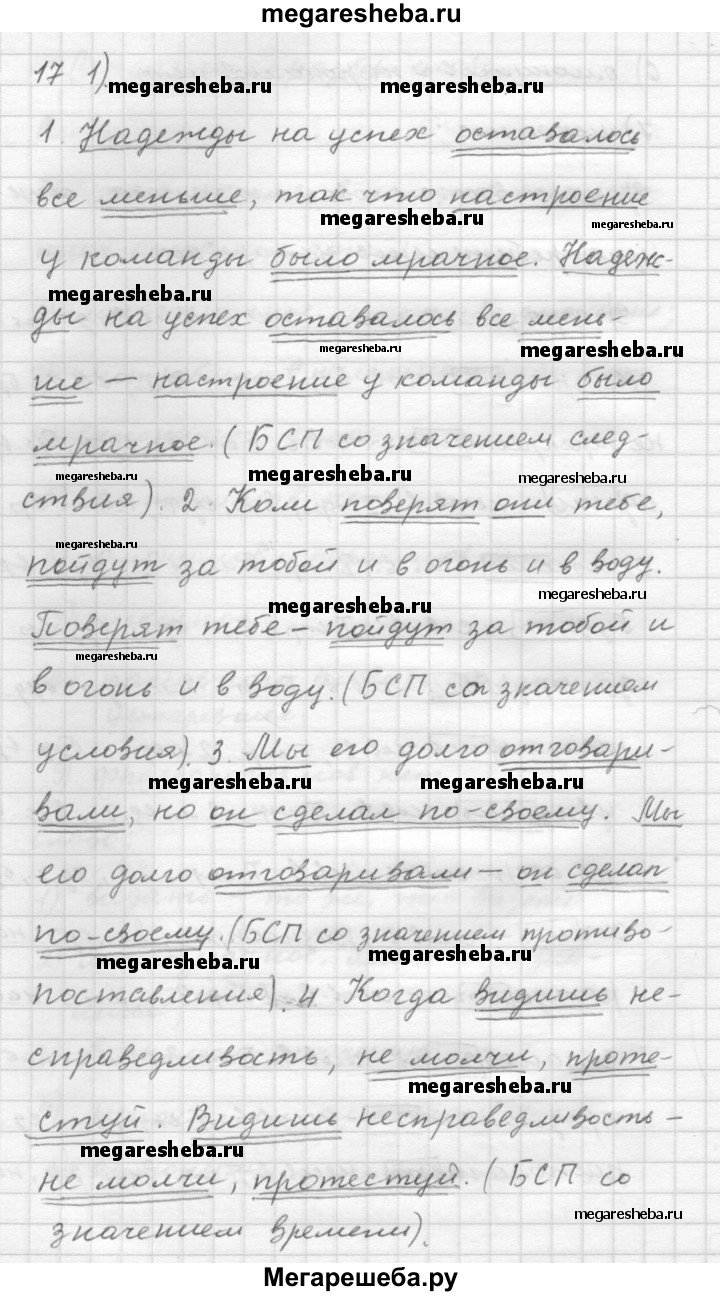 megaresheba.ru
17 1).
megaresheba.ru megaresheba.ru
1. Надежды на успех оставалось
все меньше, так что настроение
megaresheba.ru megaresheba.ru
у команды было мрачное. Надеж-
megaresheba.ru
ды на успех оставалось все мень-
megaresheba.ru megaresheba.ru
ше — настроение у команды было
мрачное. (БСП со значением след-
megaresheba.ru megaresheba.ru megaresheba.ru
ствия). 2. Коли поверят они тебе,
megaresheba.ru
пойдут за тобой и в огонь и в воду.
megaresheba.ru megaresheba.ru
Поверят тебе – пойдут за тобой и
megaresheba.ru
в огонь и в воду. (БСП со значением
условия). 3. Мы его долго отговари-
megaresheba.ru megaresheba.ru
вали, но он сделал по-своему. Мы
его долго отговаривали – он сделал
по-своему. (БСП со значением противо-
megaresheba.ru megaresheba.ru
поставления). 4. Когда видишь не-
справедливость, не молчи, проте-
megaresheba.ru
стуй. Видишь несправедливость –
megaresheba.ru
не молчи, протестуй. (БСП со
megaresheba.ru
значением времени).
Мегарешеба.ру